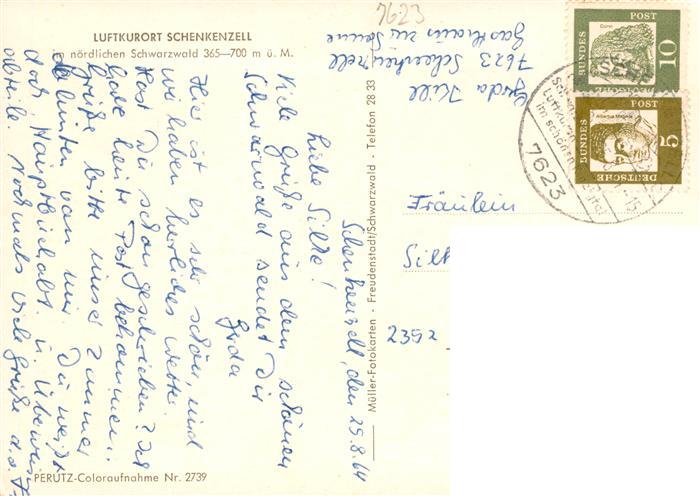 7623
LUFTKURORT SCHENKENZELL
im nördlichen Schwarzwald 365—700 m ü. M.
Schenkenzell, den 25.8.64
Liebe Silke!
Viele Grüße aus dem schönen
Schwarzwald sendet Dir
Gerda
Hier ist es sehr schön, und
wir haben herrliches Wetter.
Hast Du schon geschrieben? Ich
habe heute Post bekommen.
Grüße bitte unser Zimmer
da hinten von mir. Du weißt
doch, Hauptbuchabt. u.
abteile. Nochmals viele Grüße d. o.
PERUTZ-Coloraufnahme Nr. 2739
Müller-Fotokarten - Freudenstadt/Schwarzwald - Telefon 28 33
Gerda
7623 Schenkenzell
Gasthaus zur Sonne
Fräulein
Silk
2352
DEUTSCHE
BUNDES
POST
10
Dürer
DEUTSCHE
BUNDES
POST
5
Albertus Magnus
7623
Luftku
im schönen